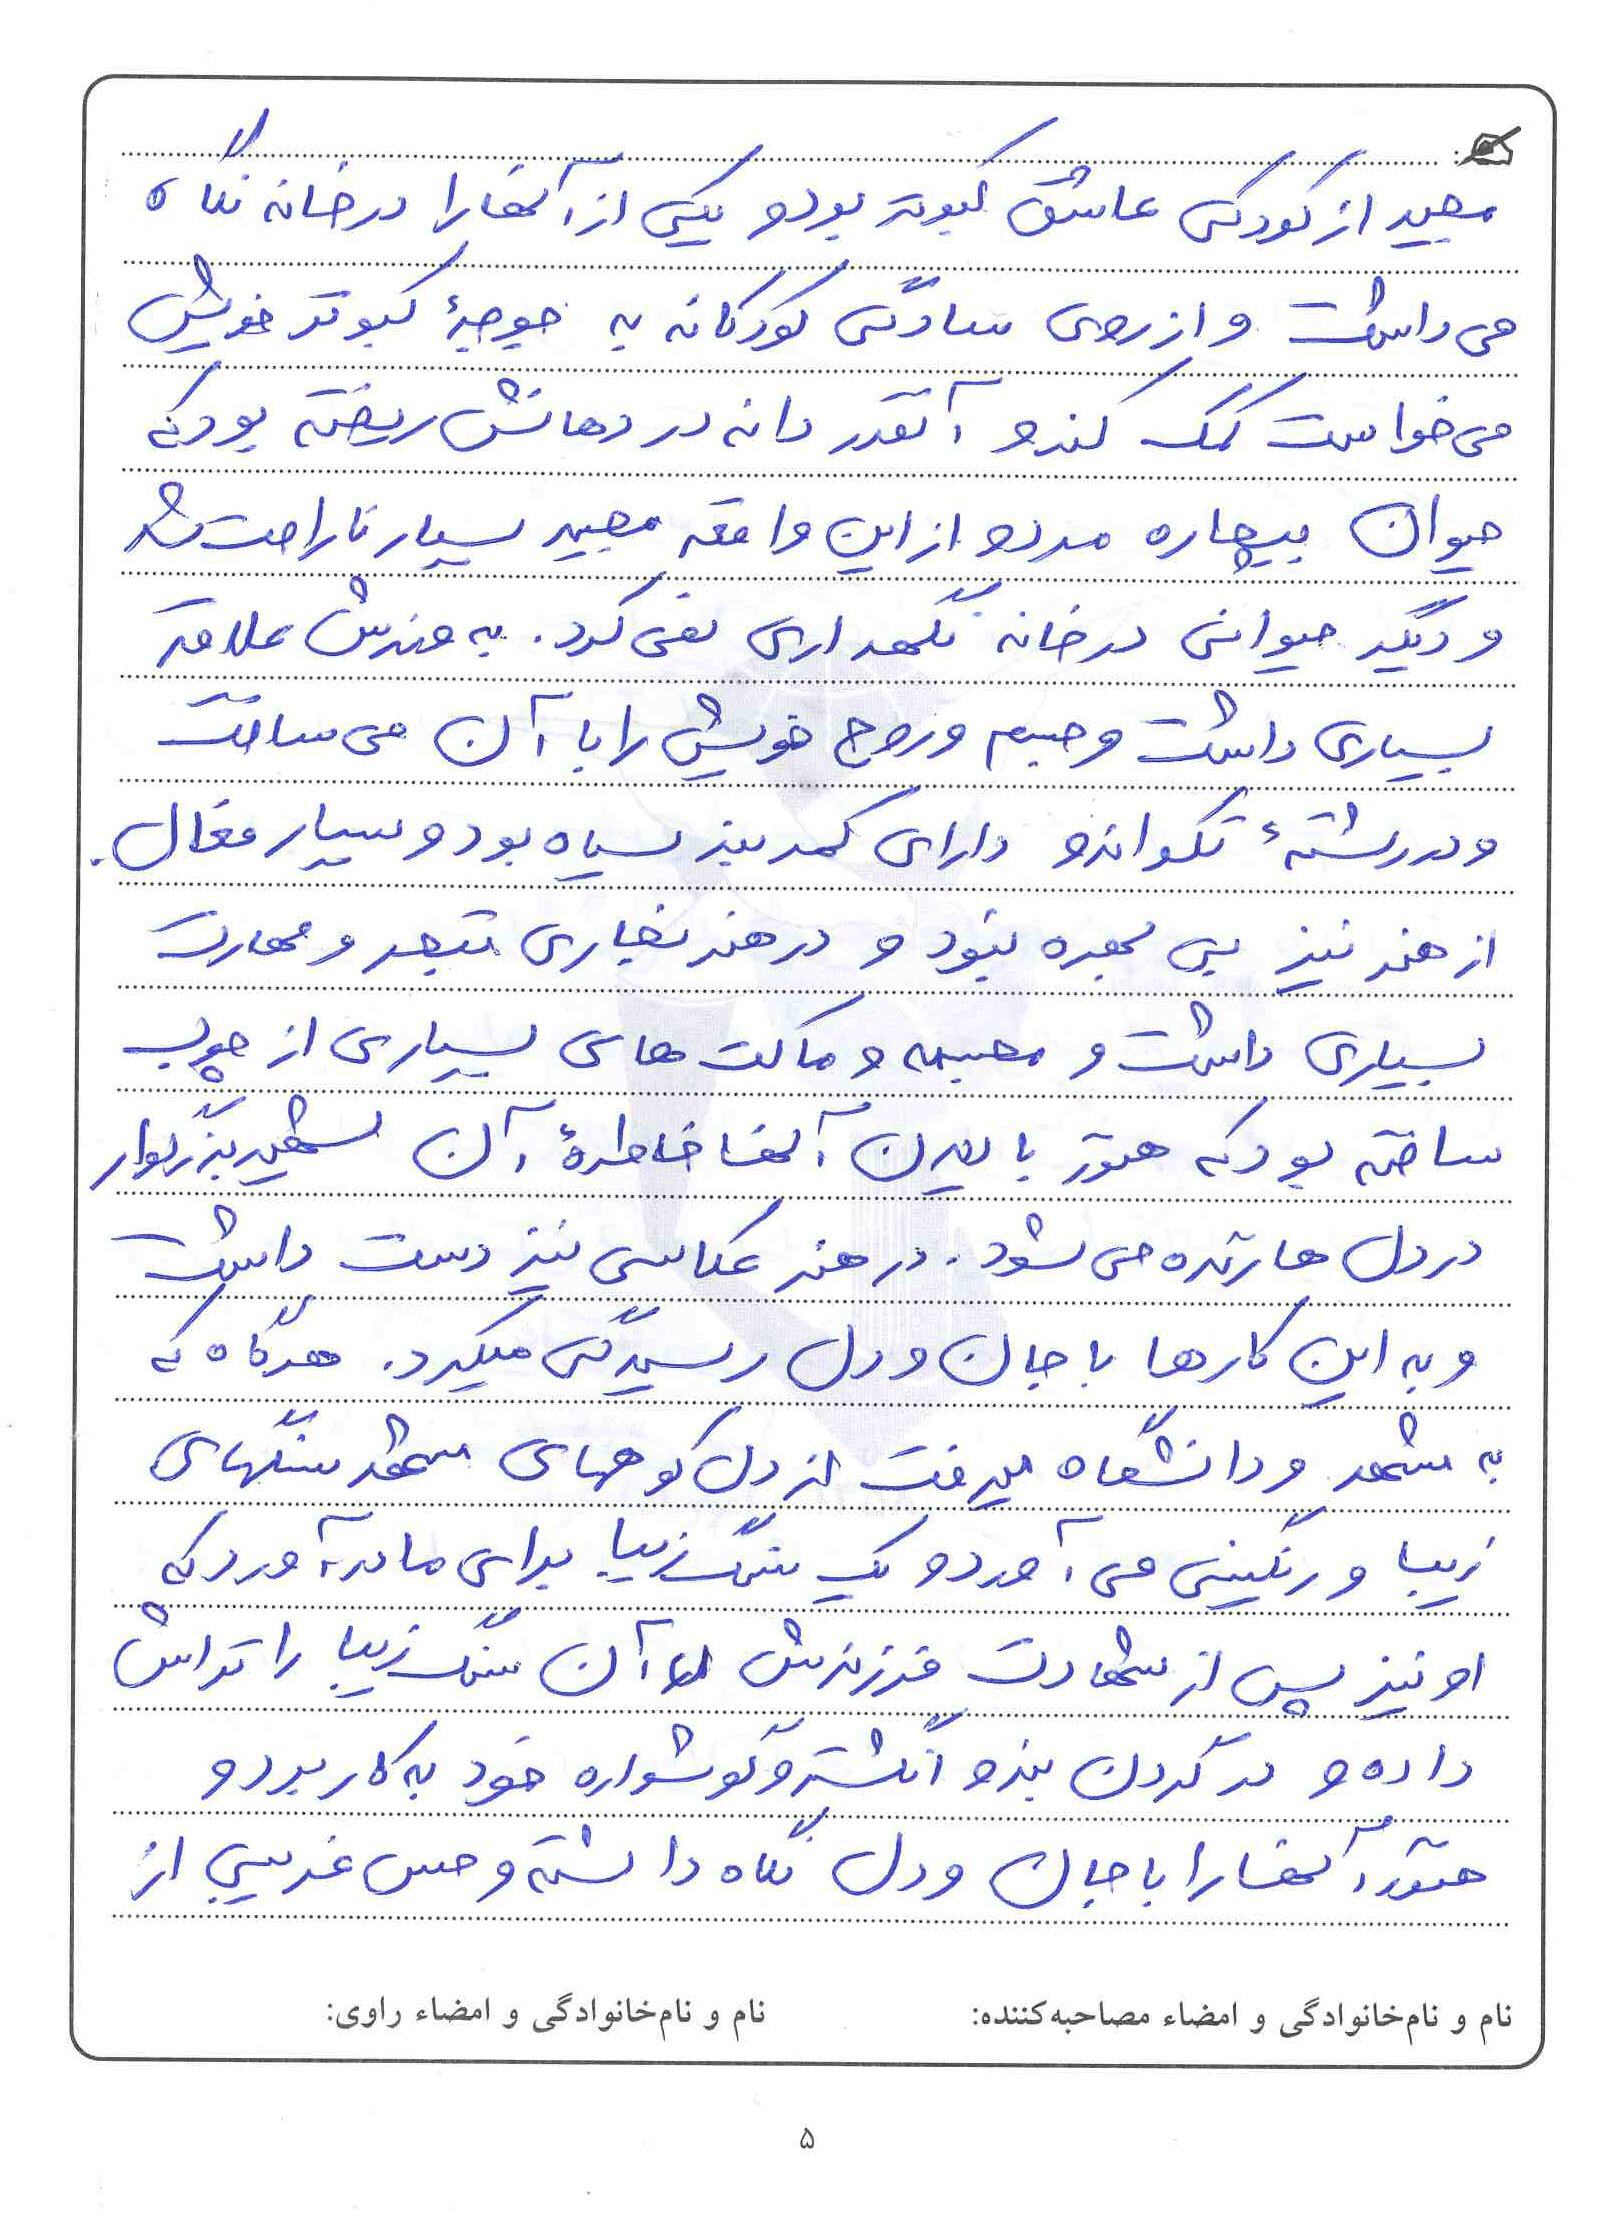 مجید از کودکی عاشق کبوتر بود و یکی از آنها را در خانه نگاه
می داشت و از روی سادگی کودکانه به جوجهٔ کبوتر خویش
می خواست کمک کند و آنقدر دانه در دهانش ریخته بود که
حیوان بیچاره مرد و از این واقعه مجید بسیار ناراحت شد
و دیگر حیوانی در خانه نگهداری نمی کرد. به ورزش علاقه
بسیاری داشت و جسم و روح خویش را با آن می ساخت
و در رشتهٔ تکواندو دارای کمربند سیاه بود و بسیار فعال.
از هنر نیز بی بهره نبود و در هنر نجاری تبحر و مهارت
بسیاری داشت و مجسمه و ماکت های بسیاری از چوب
ساخته بود که هنوز با دیدن آنها خاطرهٔ آن شهید بزرگوار
در دل ها زنده می شود. در هنر عکاسی نیز دست داشت
و به این کارها با جان و دل رسیدگی میکرد. هرگاه که
به مشهد و دانشگاه میرفت از دل کوههای مشهد سنگهای
زیبا و رنگینی می آورد و یک سنگ زیبا برای مادر آورد که
او نیز پس از شهادت فرزندش آن سنگ زیبا را تراش
داده و در گردن بند و انگشتر و گوشواره خود به کار برد و
هنوز آنها را با جان و دل نگاه داشته و حس غریبی از
نام و نام‌خانوادگی و امضاء مصاحبه‌کننده: نام و نام‌خانوادگی و امضاء راوی:
۵